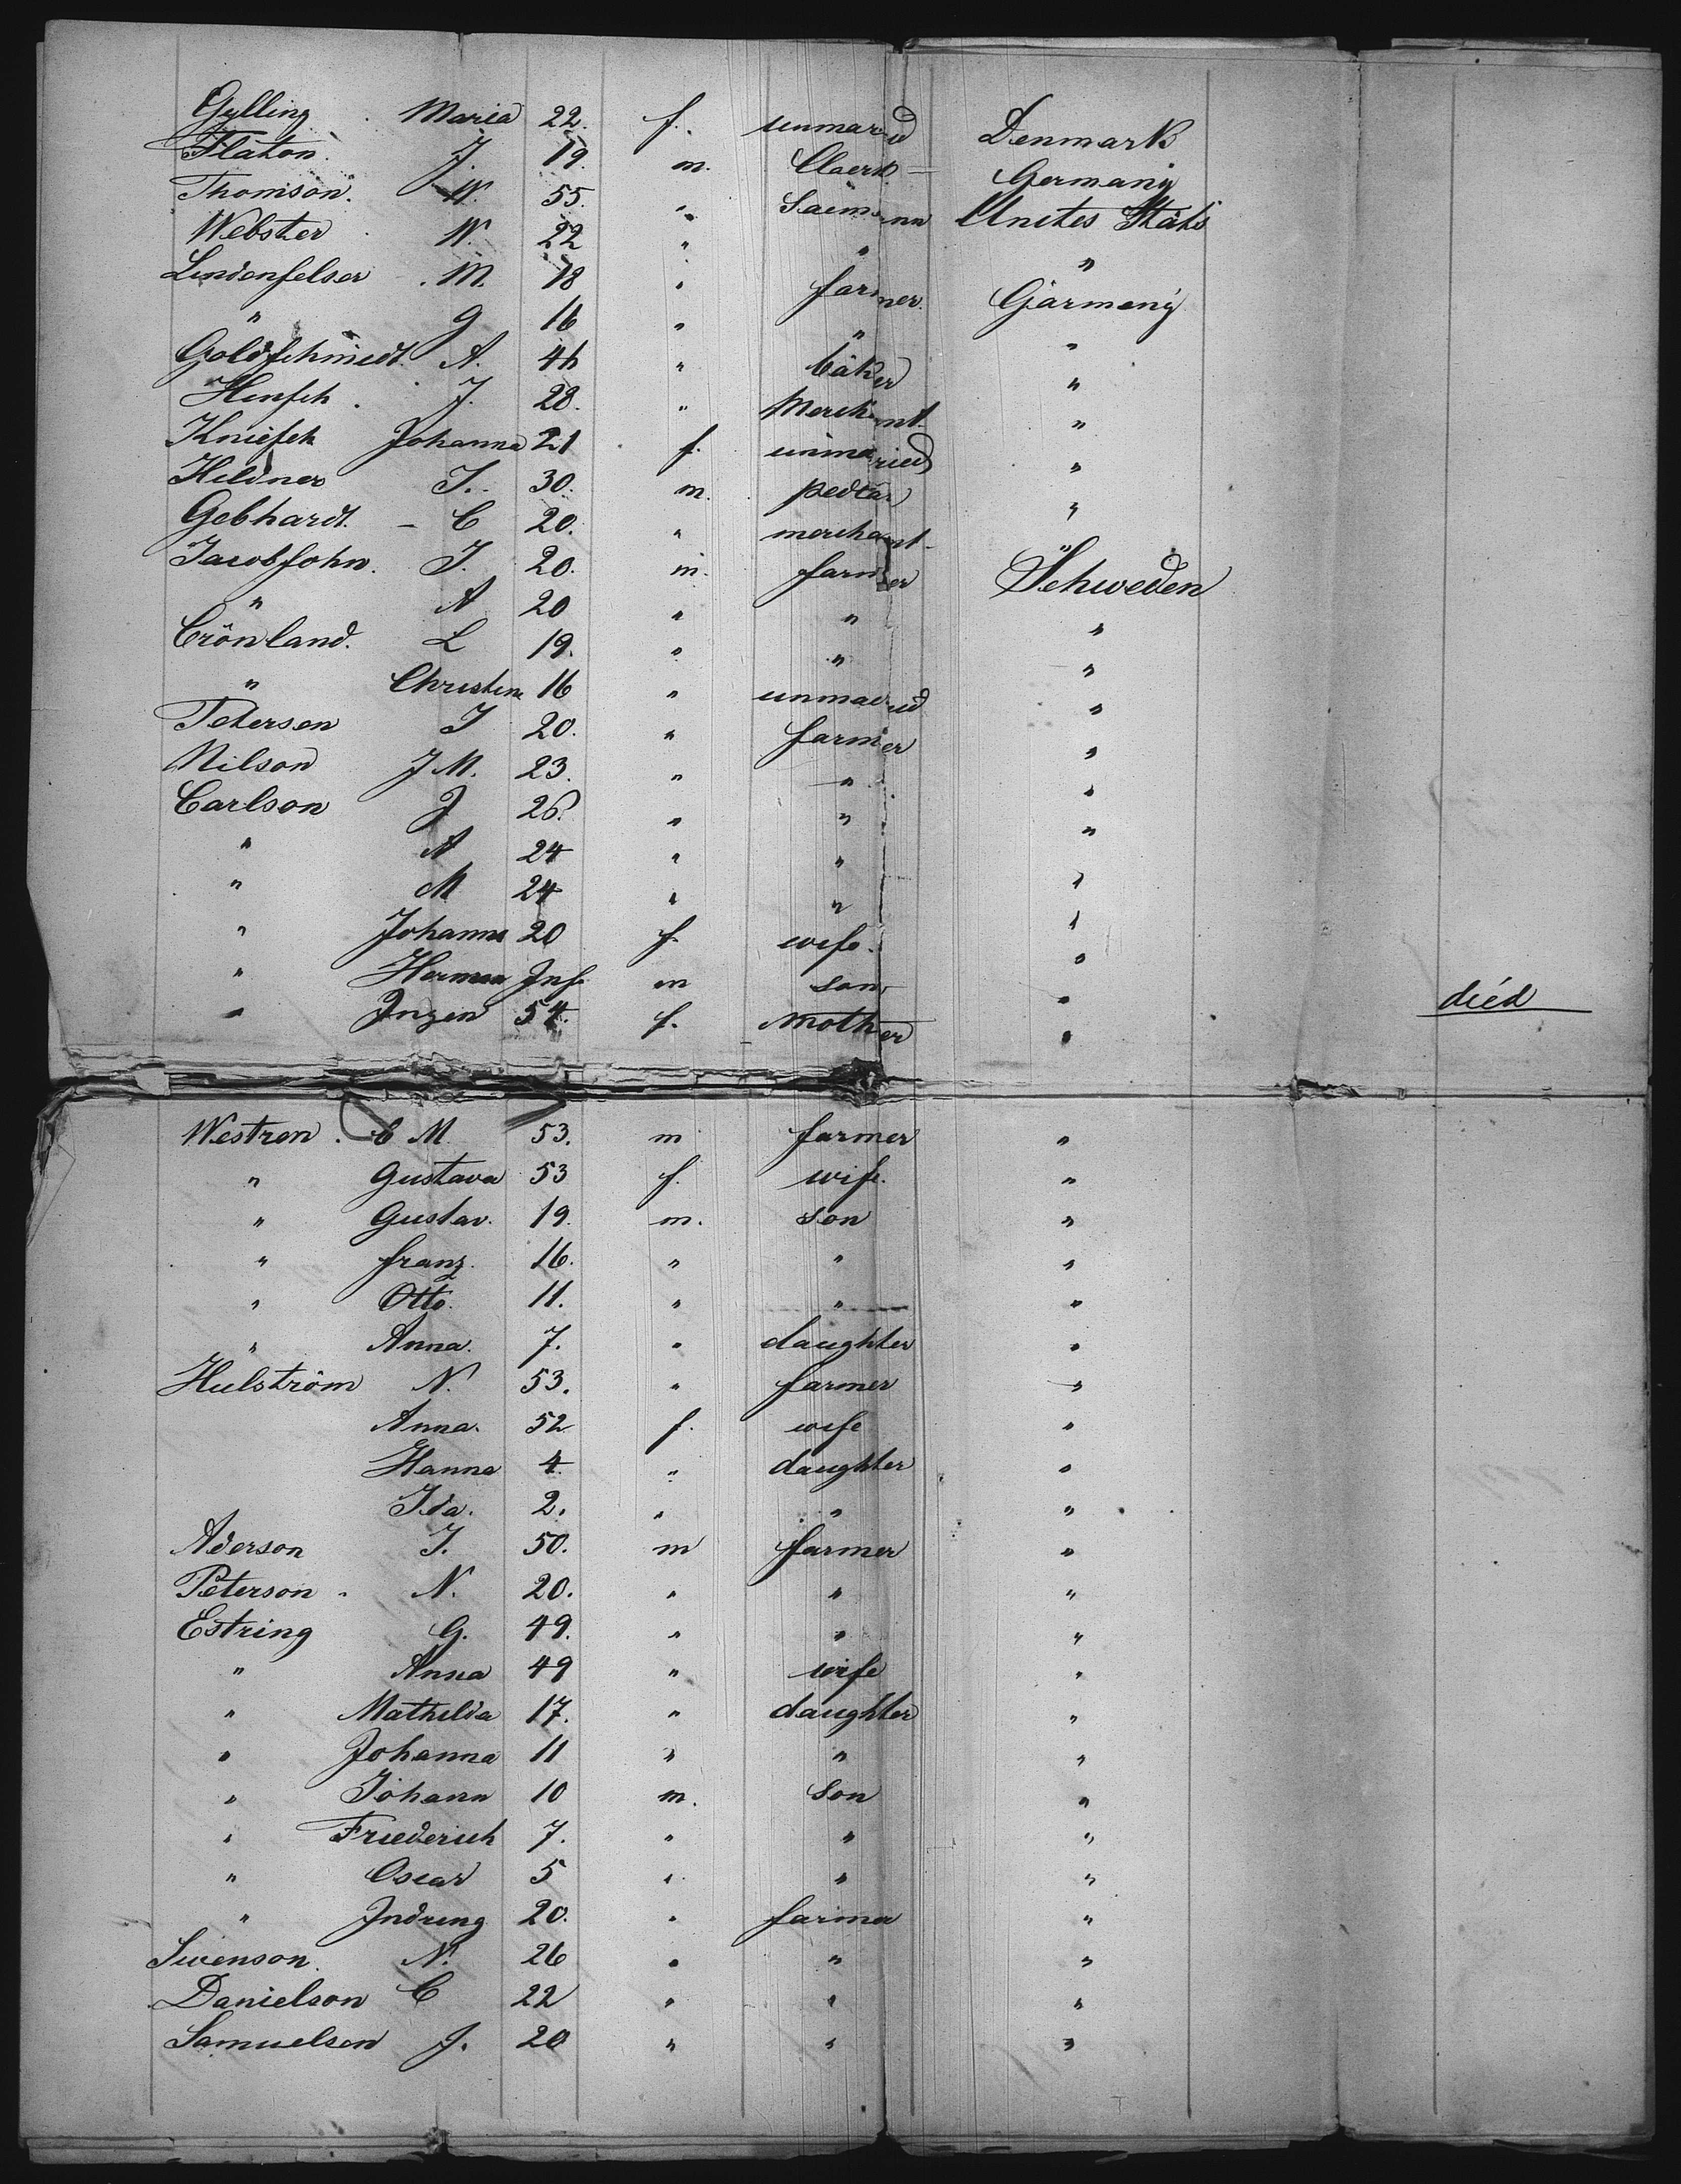 Gylling Maria 22. f. unmaried Denmark
Flaton. J. 19. m. Claerk Germany
Thomson. W. 55. " Saemann Unites Stats
Webster W. 22 " " "
Lindenfelser M. 18 " farmer. Garmeny
" G 16 " " "
Goldschmidt. A. 46 " bäker "
Hensch J. 28. " Merchant "
Kniesch Johanna 21 f. unmaried "
Hildner J. 30. m. pedlar "
Gebhardt. C 20. " merchant "
Jacobsohn. J. 20. m. farmer Schweden
" A 20 " " "
Crönland. L 19. " " "
" Christine 16 " unmaried "
Petersen J 20. " farmer "
Nilson J M. 23. " " "
Carlson J 26. " " "
" A 24 " " "
" M 24 " " "
" Johanna 20 f. wife. "
" Herman Inf. m son "
" Ingen 54. f. Mother " died
Westren. C M. 53. m farmer "
" Gustava 53 f. wife. "
" Gustav. 19. m. son "
" franz. 16. " " "
" Otto. 11. " " "
" Anna. 7. " daughter "
Hulström N. 53. " farmer "
Anna. 52 f. wife "
Hanna 4. " daughter "
Ida. 2. " " "
Aderson J. 50. m farmer "
Peterson N. 20. " " "
Estring G. 49. " " "
" Anna 49 " wife "
" Mathilda 17. " daughter "
" Johanna 11 " " "
" Johann 10 m. Son "
" Friederich 7. " " "
" Oscar 5 " " "
" Indreng 20. " farmer "
Swenson. N. 26 " " "
Danielson C 22 " " "
Samuelson J. 20 " " "